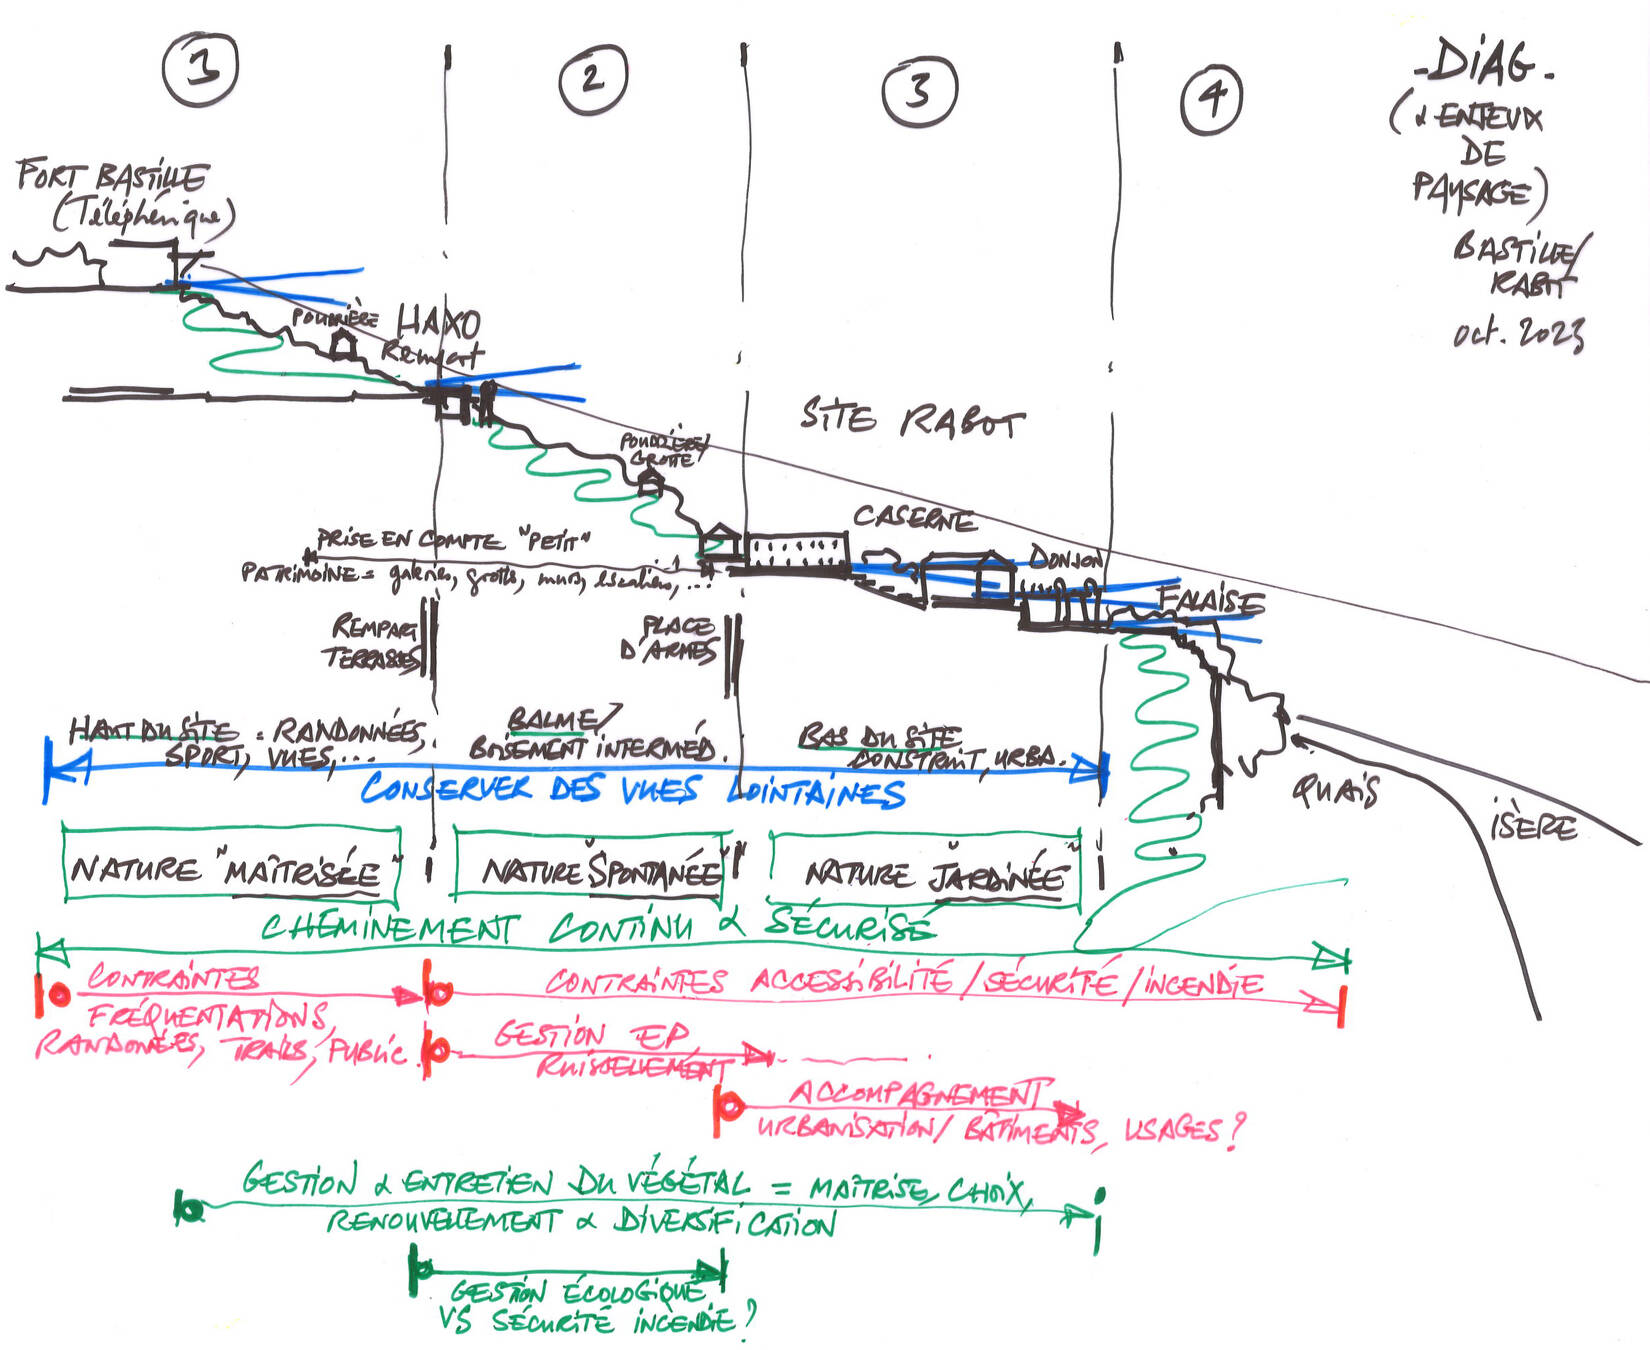 1
2
3
4
- DIAG -
(& ENJEUX
DE
PAYSAGE)
BASTILLE/
RABOT
oct. 2023
FORT BASTILLE
(Téléphérique)
POUDRIÈRE
HAXO
Rempart
SITE RABOT
POUDRIÈRE/
GROTTE
CASERNE
DONJON
FALAISE
PRISE EN COMPTE "PETIT"
PATRIMOINE = galeries, grottes, murs, escaliers, ...
REMPART
TERRASSES
PLACE
D'ARMES
HAUT DU SITE = RANDONNÉES,
SPORT, VUES, ...
BALME/
BOISEMENT INTERMÉD.
BAS DU SITE
CONSTRUIT, URBA.
CONSERVER DES VUES LOINTAINES
QUAIS
ISÈRE
NATURE "MAÎTRISÉE"
NATURE "SPONTANÉE"
NATURE "JARDINÉE"
CHEMINEMENT CONTINU & SÉCURISÉ
CONTRAINTES
FRÉQUENTATIONS,
RANDONNÉES, TRAILS, PUBLIC.
CONTRAINTES ACCESSIBILITÉ/SÉCURITÉ/INCENDIE
GESTION EP
RUISSELLEMENT
ACCOMPAGNEMENT
URBANISATION/ BÂTIMENTS, USAGES?
GESTION & ENTRETIEN DU VÉGÉTAL = MAÎTRISE, CHOIX,
RENOUVELLEMENT & DIVERSIFICATION
GESTION ÉCOLOGIQUE
VS SÉCURITÉ INCENDIE?